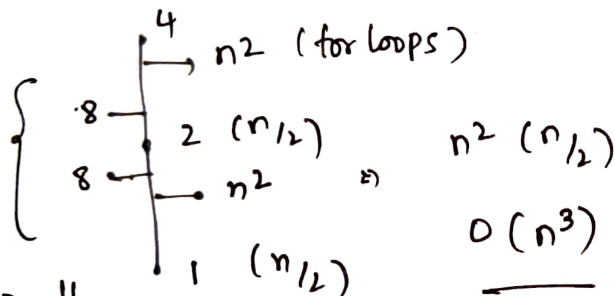 4
n2 (for loops)
8
2 (n/2)
n2 (n/2)
8
n2
⇒
O(n3)
1 (n/2)